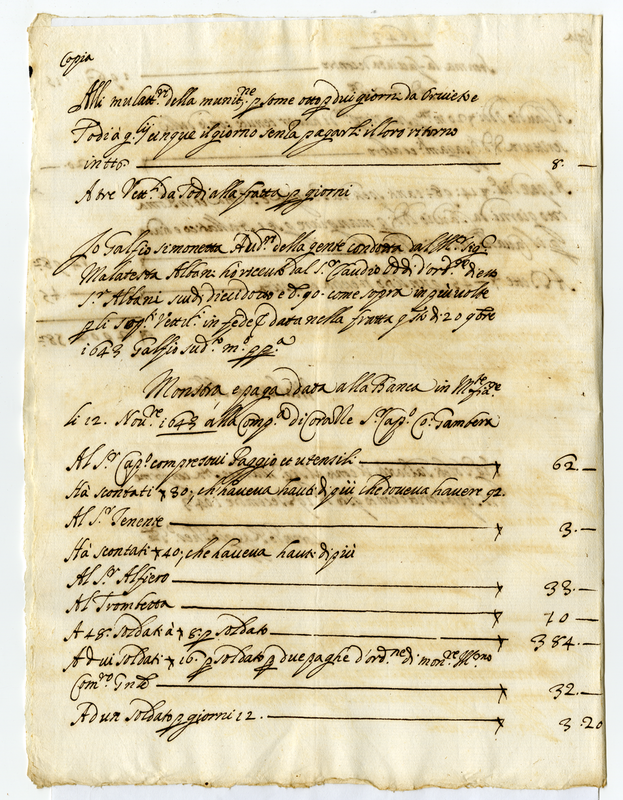 Copia
Alli mulatt.ri della munit.ne p some otto p dui giorni da Orvieto e
Todi à g.li cunque il giorno senza pagarli il loro ritorno
in tto 8. —
A tre Vett.li da Todi alla fratta p giorni
Io Galasso Simonetta Aud.re della gente condotta dal
Malatesta Albani hò ricevuto dal S.r Claudio d'ord.ne di esso
S.r Albani scudi diecidotto e b. 90. come sopra in più volte
p li sop.i Vett.li in fede data nella fratta q.sto dì 20 9bre
1643 Galasso sud.o m.o pp.a
Monstra e paga data alla Banca in
li 12. Nov.re 1643 alla Comp.a di Coralle S.r Cap.o Co: Gambera
Al S.r Cap.o compresovi Paggio et utensili 62. —
Hà scontati 30, che haveva hauti di più, che doveva havere 92.
Al S.r Tenente 3. —
Hà scontati 40, che haveva hauti di più
Al S.r Alfiero 33. —
Al Trombetta 10 —
A 48. soldati à 8. p soldato 384. —
A dui soldati 16. p soldato p due paghe d'ord.ne di mon.re
32. —
Ad un soldato p giorni 12. 3.20